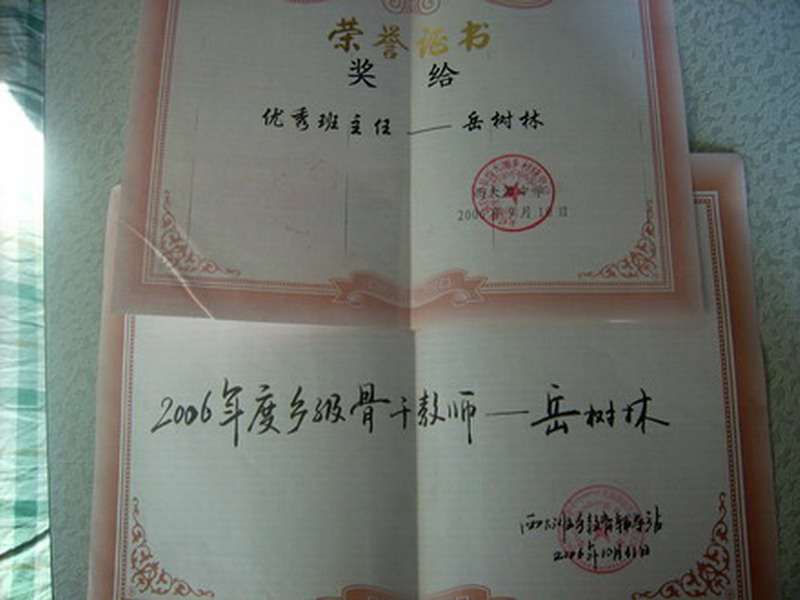 荣誉证书
奖给
优秀班主任——岳树林
2006年9月10日
2006年度乡级骨干教师—岳树林
2006年10月11日